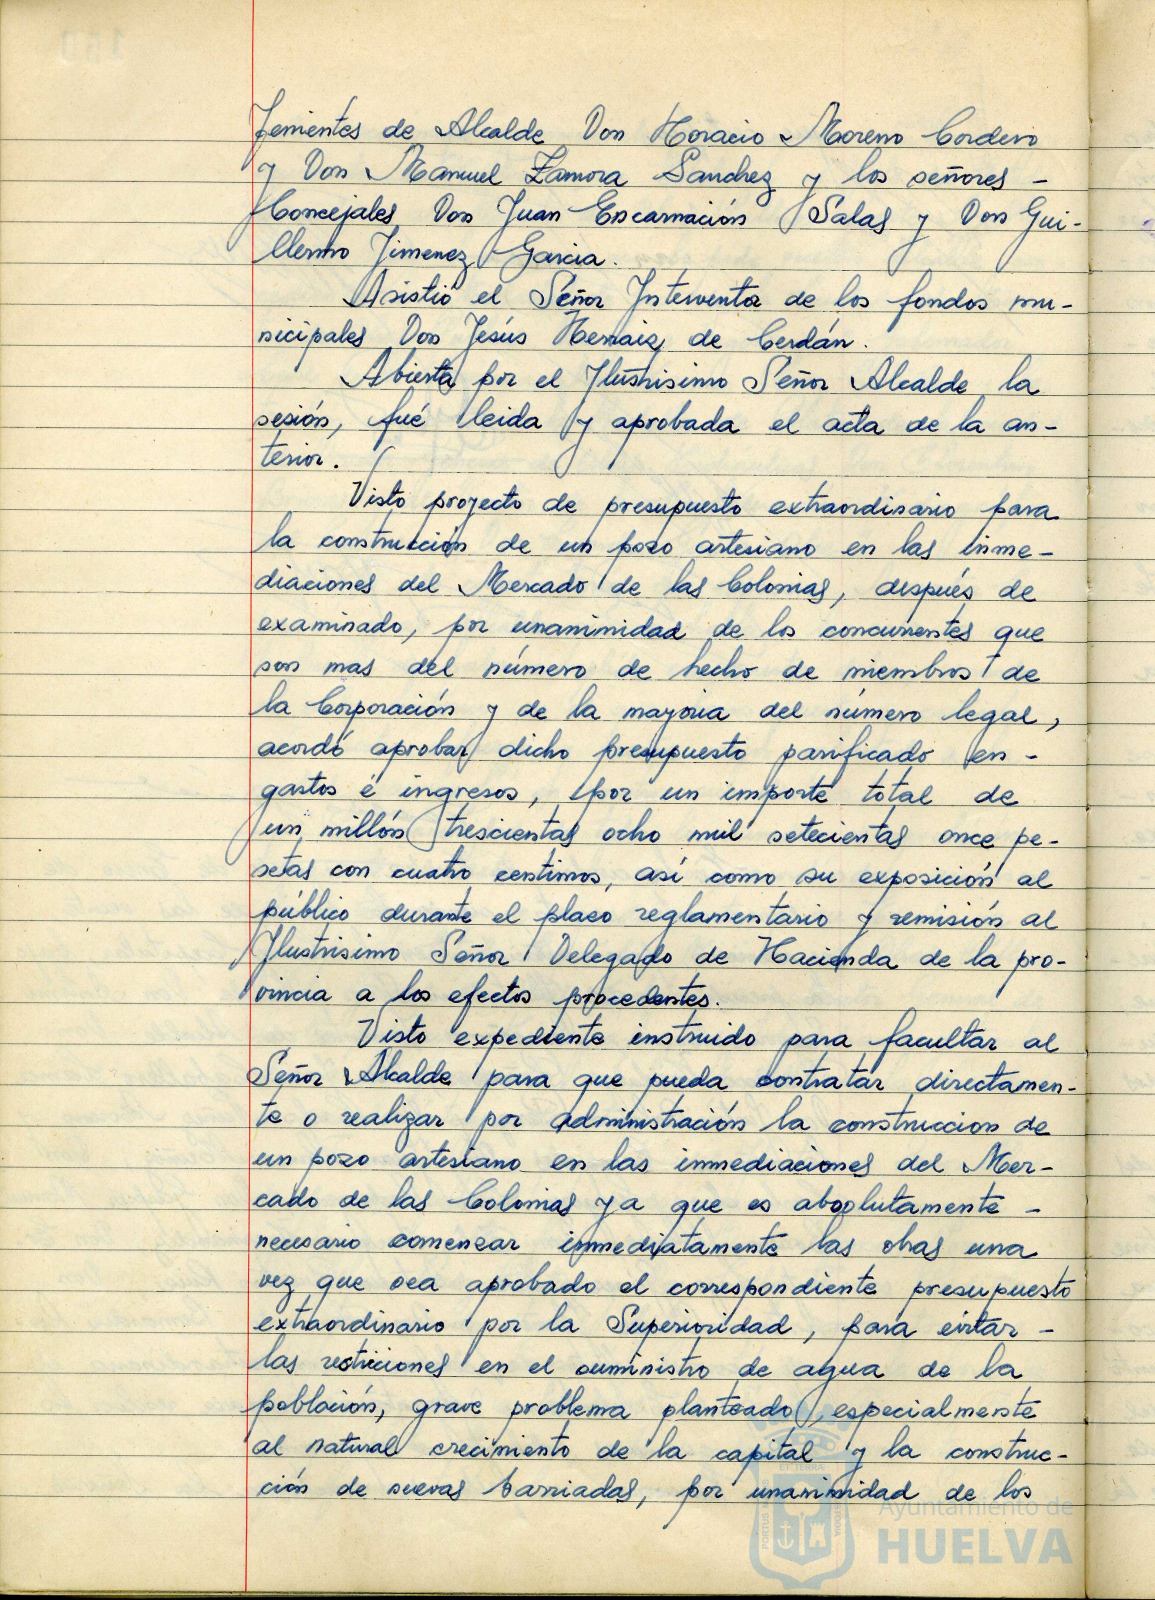 Tenientes de Alcalde Don Horacio Moreno Cordero
y Don Manuel Zamora Sanchez y los señores -
Concejales Don Juan Encarnación Salas y Don Gui-
llermo Jimenez Garcia.
Asistió el Señor Interventor de los fondos mu-
nicipales Don Jesús Hernaiz de Cerdán.
Abierta por el Ilustrisimo Señor Alcalde la
sesión, fué leida y aprobada el acta de la an-
terior.
Visto proyecto de presupuesto extraordinario para
la construcción de un pozo artesiano en las inme-
diaciones del Mercado de las Colonias, después de
examinado, por unanimidad de los concurrentes que
son mas del número de hecho de miembros de
la Corporación y de la mayoria del número legal,
acordó aprobar dicho presupuesto panificado en -
gastos é ingresos, por un importe total de
un millón trescientas ocho mil setecientas once pe-
setas con cuatro centimos, así como su exposición al
público durante el plazo reglamentario y remisión al
Ilustrisimo Señor Delegado de Hacienda de la pro-
vincia a los efectos procedentes.
Visto expediente instruido para facultar al
Señor Alcalde para que pueda contratar directamen-
te o realizar por administración la construccion de
un pozo artesiano en las inmediaciones del Mer-
cado de las Colonias ya que es absolutamente -
necesario comenzar inmediatamente las obras una
vez que sea aprobado el correspondiente presupuesto
extraordinario por la Superioridad, para evitar -
las restriciones en el suministro de agua de la
población, grave problema planteado, especialmente
al natural crecimiento de la capital y la construc-
ción de nuevas barriadas, por unanimidad de los
Ayuntamiento de
HUELVA